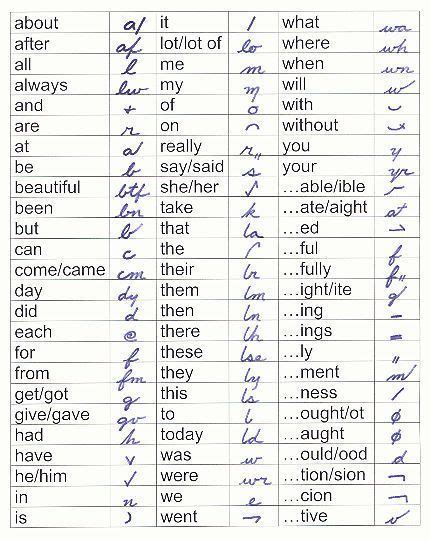 about a/ it / what wa
after af lot/lot of lo where wh
all l me m when wn
always lw my m will w
and + of o with
are r on without
at a/ really r,, you y
be b say/said s your yr
beautiful btf she/her …able/ible
been bn take k …ate/aight at
but b that ta …ed
can c the …ful f
come/came cm their tr …fully f,,
day dy them tm …ight/ite g
did d then tn …ing –
each e there th …ings =
for f these tse …ly ,,
from fm they ty …ment m
get/got g this ts …ness /
give/gave gv to t …ought/ot ø
had h today td …aught ø
have v was w …ould/ood d
he/him were wr …tion/sion
in n we e …cion
is went …tive v